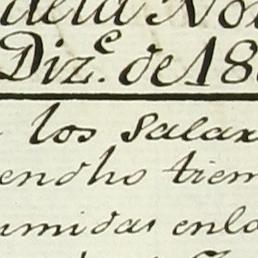 dela No
Diz.e de 18
los salar
endho tiem
umidas enlo